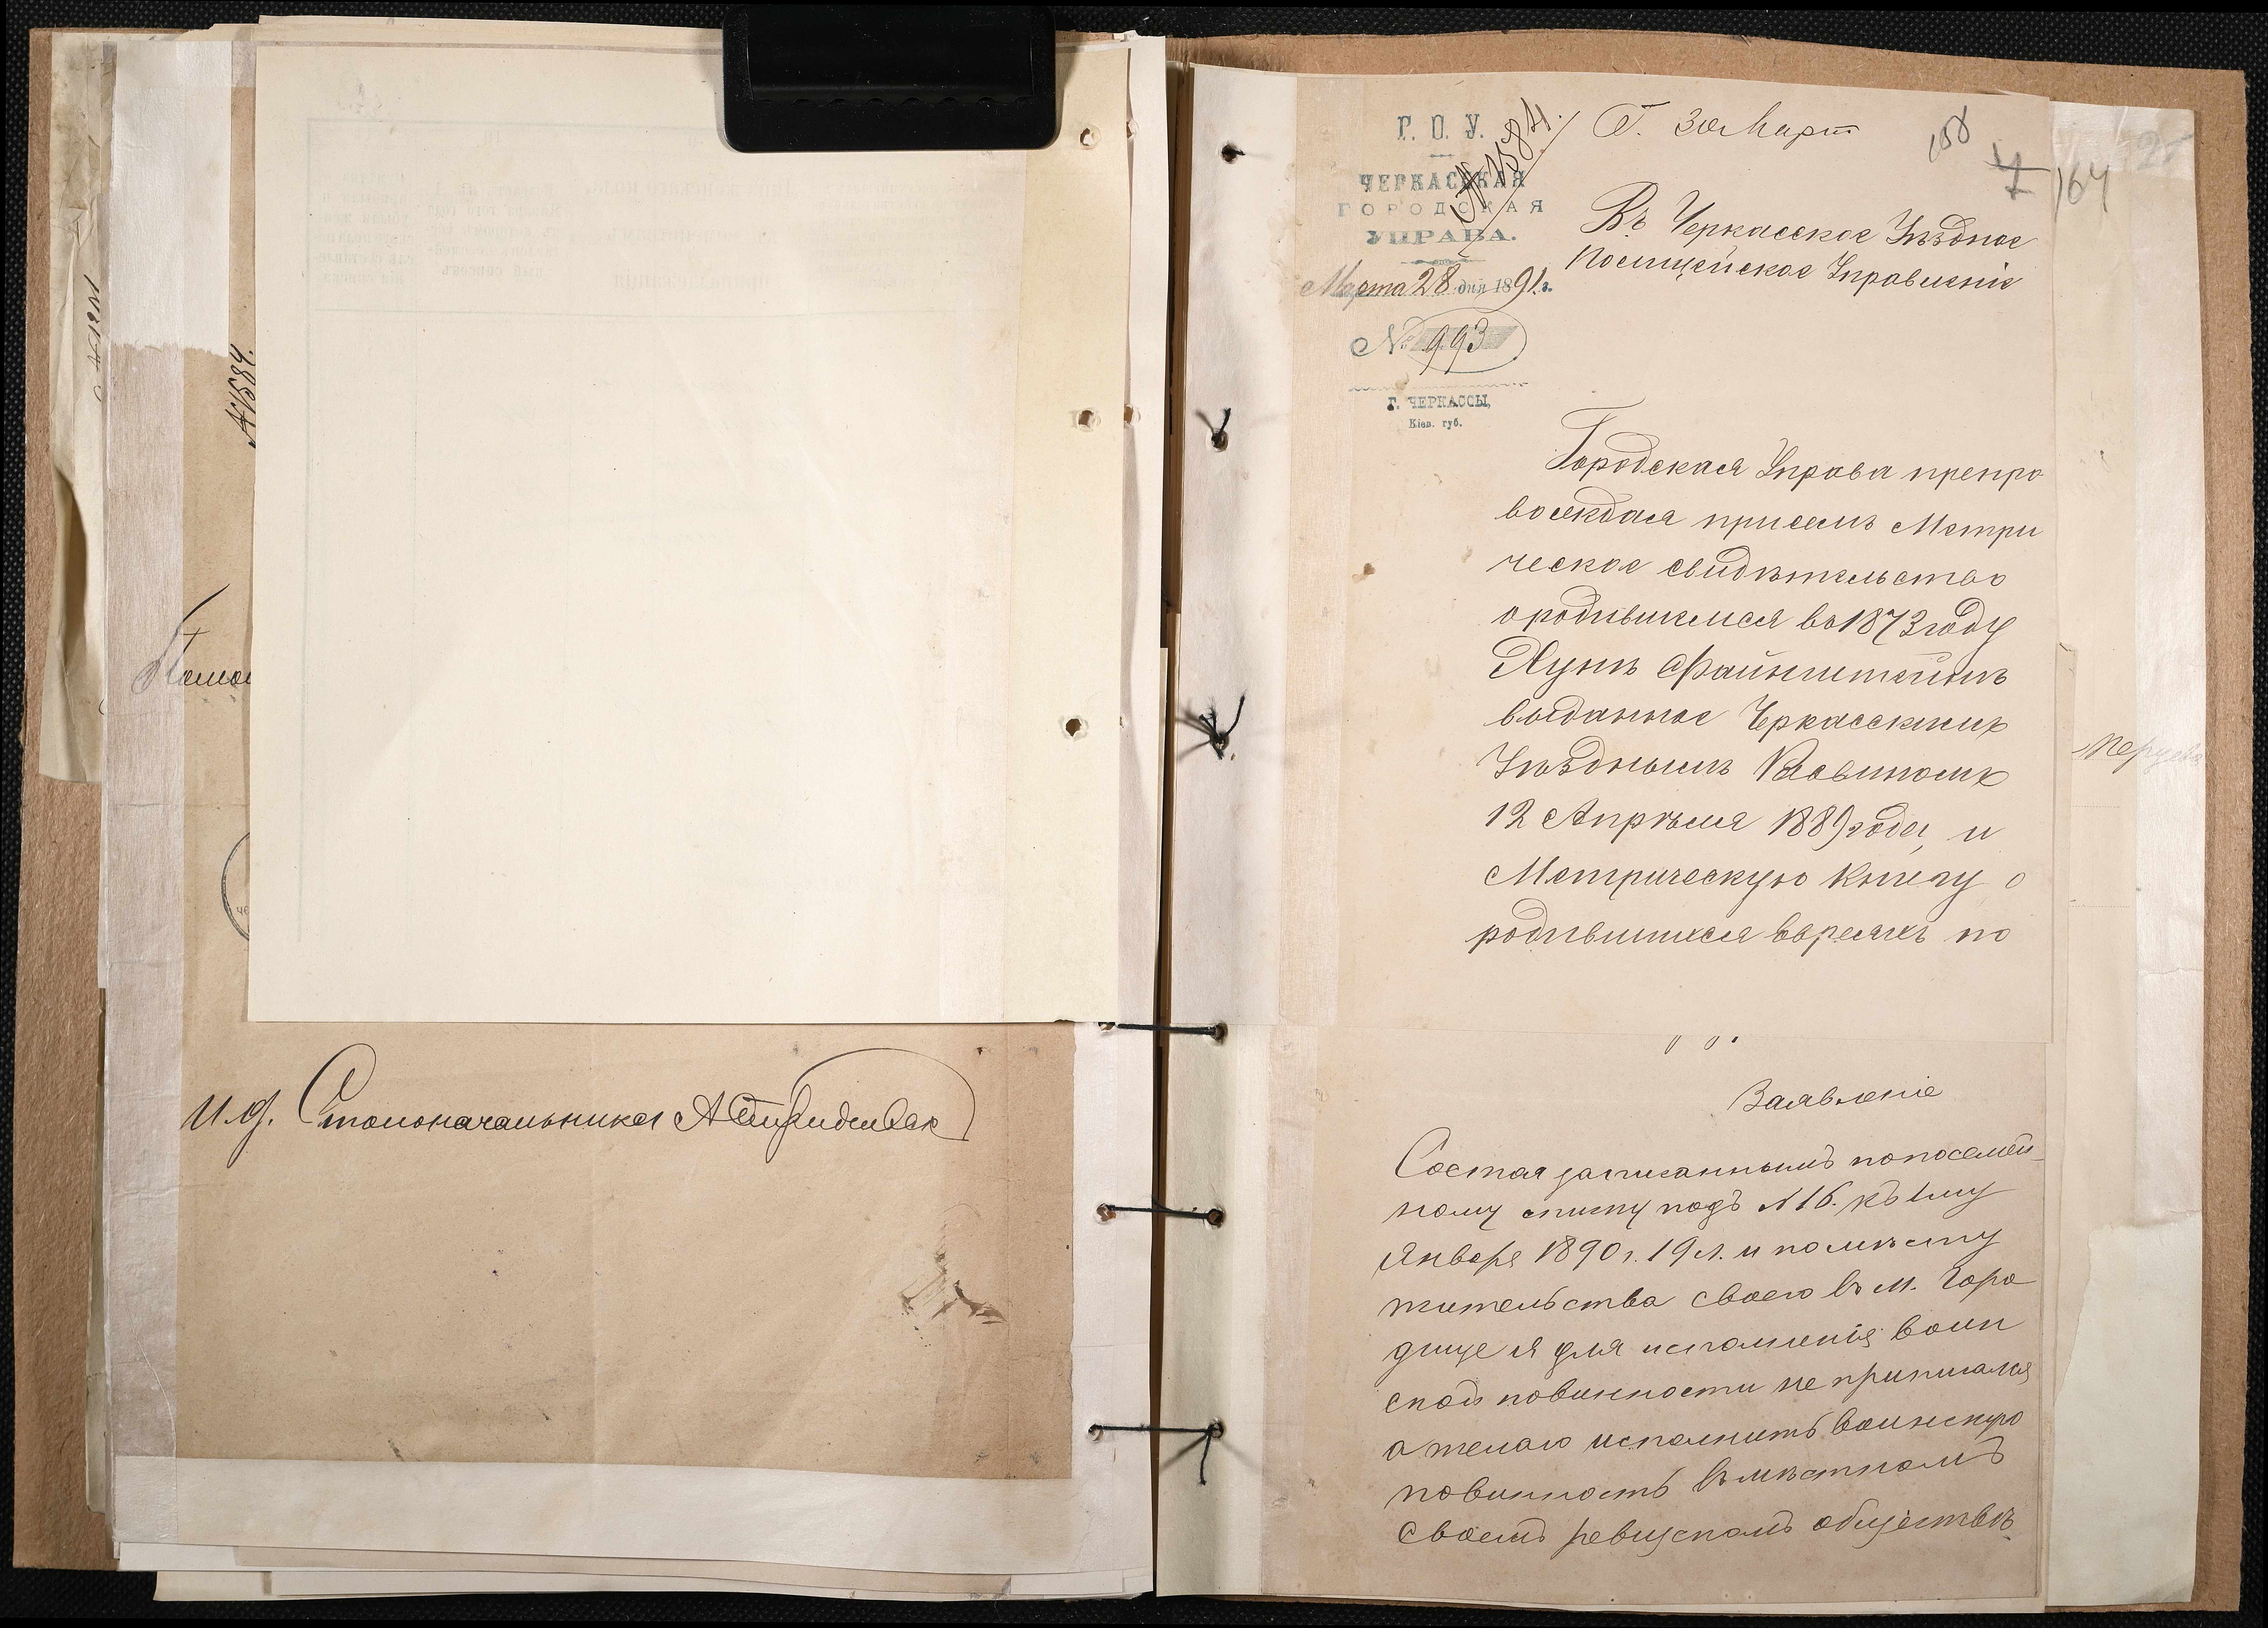 № 1584.
И. д. Столоначальника
Г. О. У.
ЧЕРКАССКАЯ
ГОРОДСКАЯ
УПРАВА.
Марта 28 дня 1891 г.
№ 993
Г. ЧЕРКАССЫ,
Кіев. губ.
№ 1584.
30 Март
158
7
164
Въ Черкасское Уѣздное
Полицейское Управленіе
Городская Управа препро
вождая присемъ Метри
ческое свидѣтельство
ородившемся въ 1873 году
Файнштейнъ
выданное Черкасскимъ
Уѣзднымъ Раввиномъ
12 Апрѣля 1889 года, и
Метрическую Книгу о
родившихся евреяхъ по
Заявленіе
Состоя записаннымъ попосемей-
ному списку подъ № 16. къ 1му
Января 1890 г. 19 л. и помѣсту
жительства своего въ м. Горо
дище я для исполненія воин
ской повинности не приписался
а желаю исполнить воинскую
повинность въ мѣстномъ
своемъ ревизскомъ обществѣ